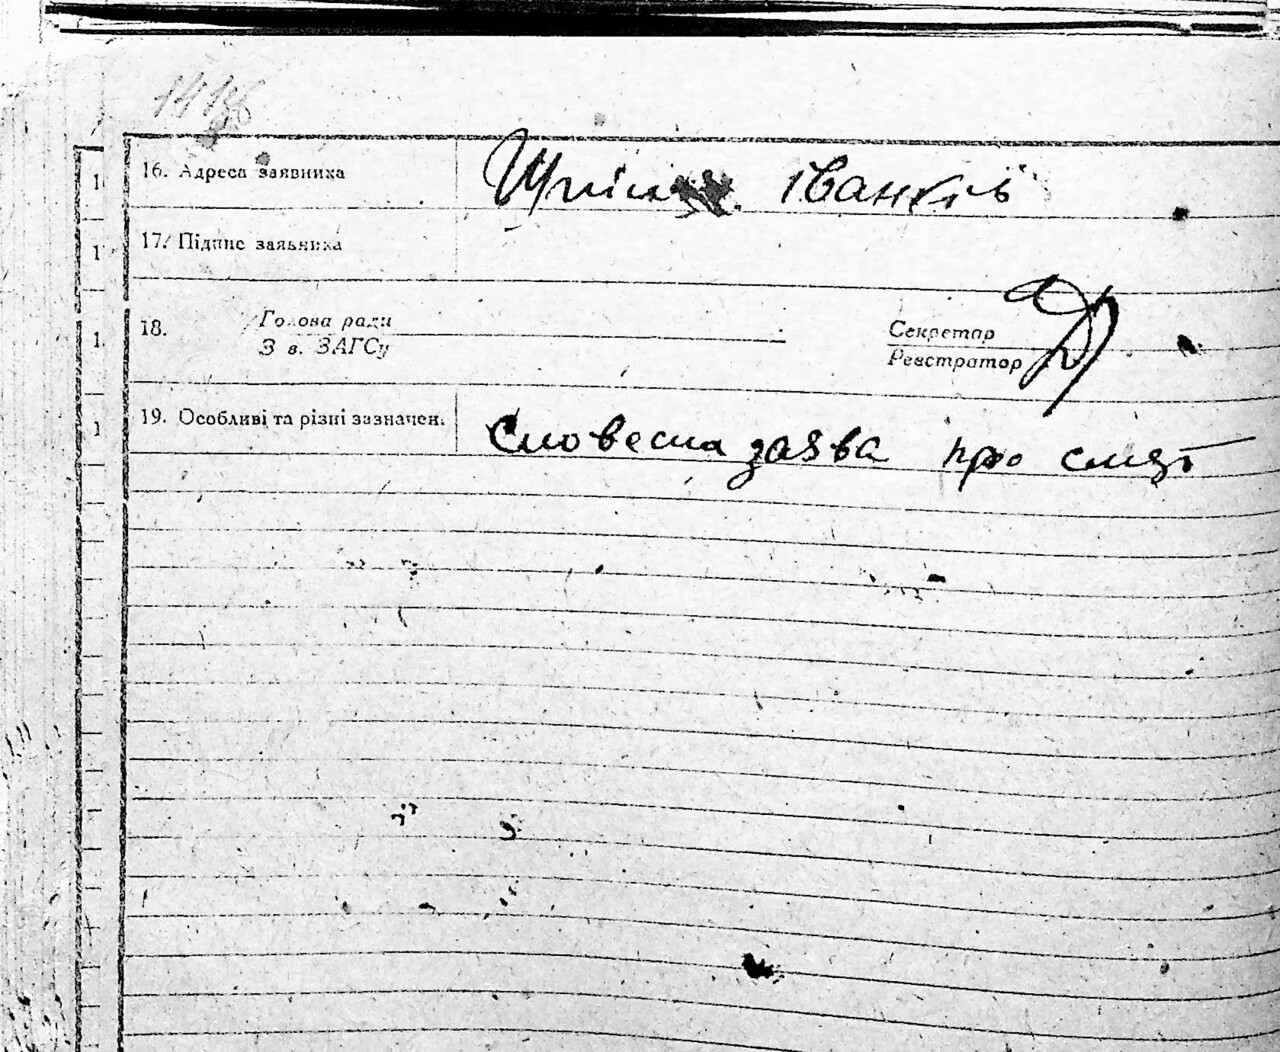 16. Адреса заявника Іванків
17. Підпис заявника
18. Голова ради Секретар
З в. ЗАГСу Реєстратор
19. Особливі та різні зазначен. Словесна заява про смерть